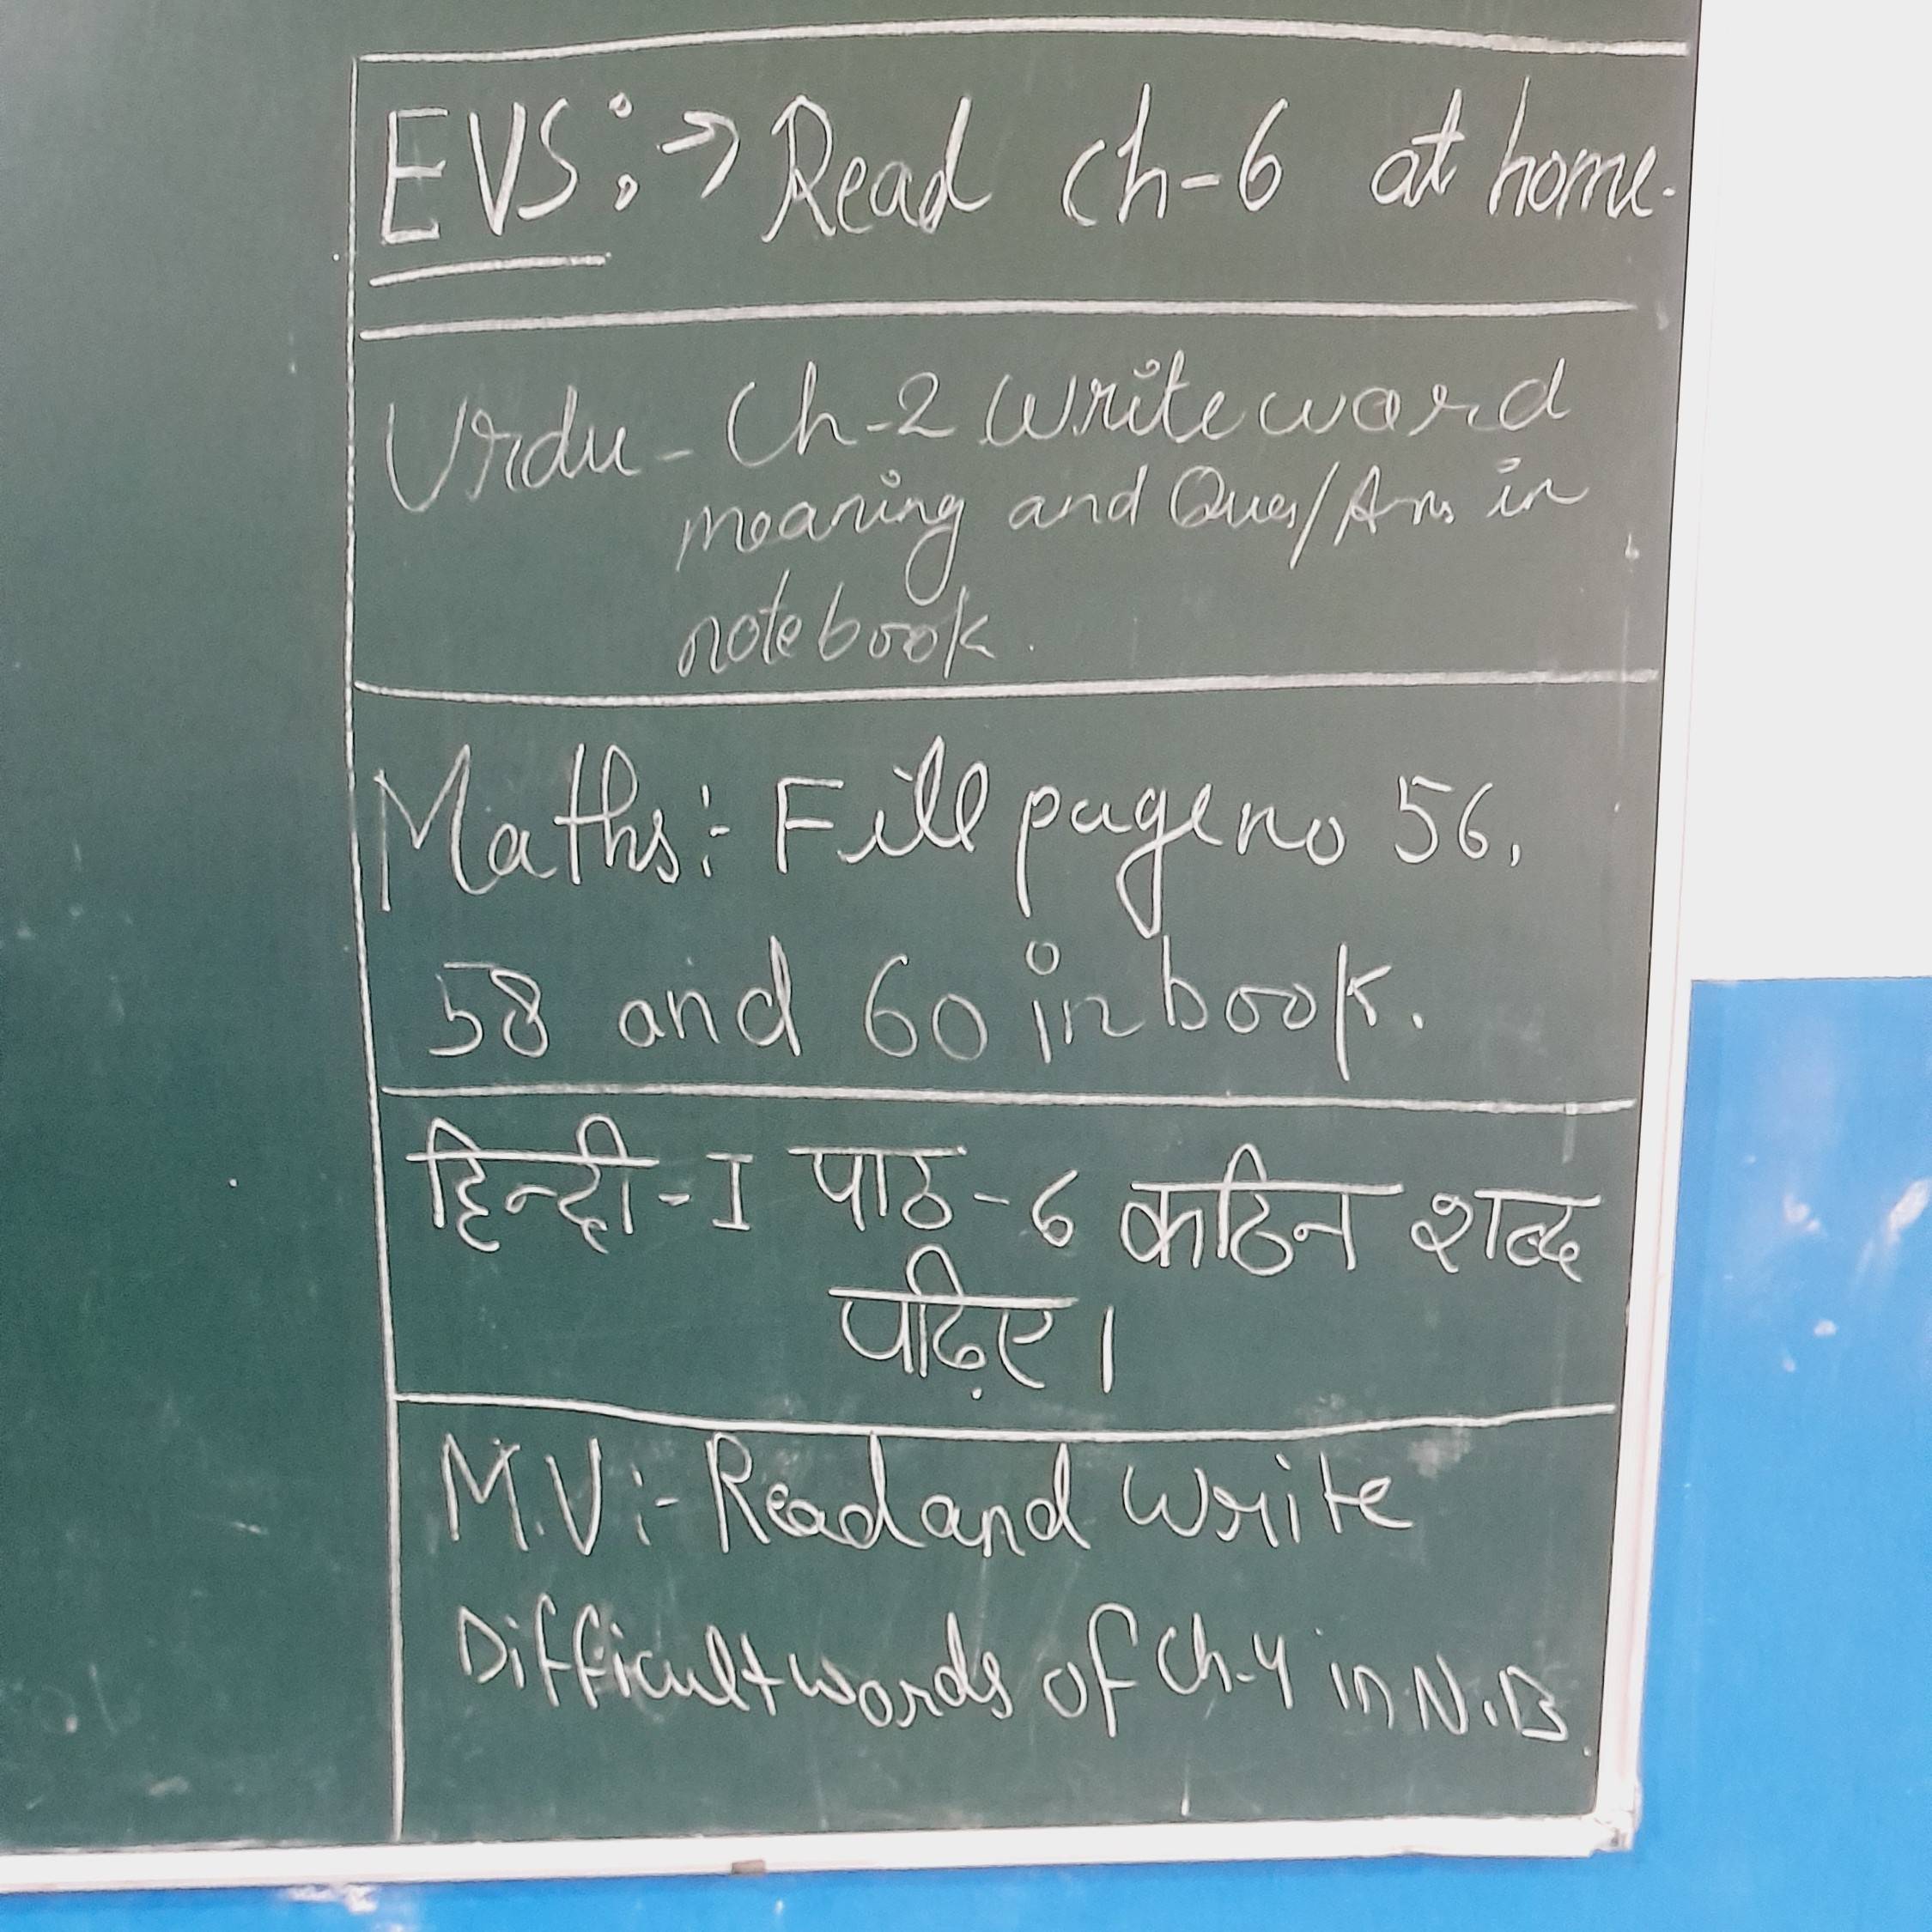 EVS:→ Read Ch-6 at home.
Urdu - Ch-2 Write word
meaning and Ques/Ans in
notebook.
Maths:- Fill page no 56,
58 and 60 in book.
हिन्दी-I पाठ-6 कठिन शब्द
पढ़िए।
M.V:- Read and Write
Difficult words of Ch-4 in N.B.